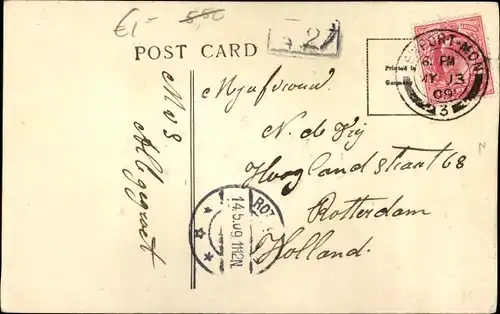 €1,- 5,50
POST CARD
Printed in
NEWPORT-MON
6. PM
MY 13
09
3
Mejufvrouw
N. de Vij
Hooglandstraat 68
Rotterdam
Holland.
ROT
14.5.09.1112N